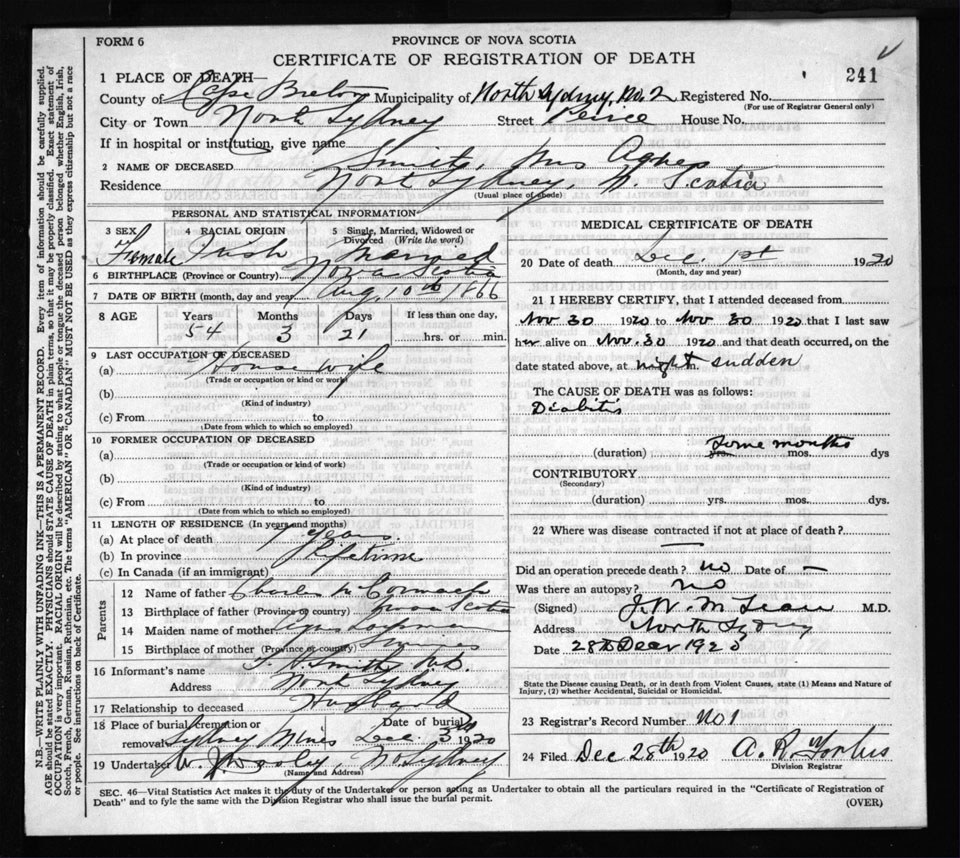 FORM 6
PROVINCE OF NOVA SCOTIA
CERTIFICATE OF REGISTRATION OF DEATH
1 PLACE OF DEATH—
241
County of Cape Breton Municipality of North Sydney, No. 2 Registered No.
(For use of Registrar General only)
City or Town North Sydney Street Peirce House No.
If in hospital or institution, give name
2 NAME OF DECEASED Smith, Mrs Agnes
Residence North Sydney, N. Scotia
(Usual place of abode)
PERSONAL AND STATISTICAL INFORMATION
3 SEX 4 RACIAL ORIGIN 5 Single, Married, Widowed or Divorced (Write the word)
Female Irish Married
6 BIRTHPLACE (Province or Country) Nova Scotia
7 DATE OF BIRTH (month, day and year) Aug, 10th 1866
8 AGE Years Months Days If less than one day,
54 3 21 hrs. or min.
9 LAST OCCUPATION OF DECEASED
(a) House wife
(Trade or occupation or kind of work)
(b)
(Kind of industry)
(c) From to
(Date from which to which so employed)
10 FORMER OCCUPATION OF DECEASED
(a)
(Trade or occupation or kind of work)
(b)
(Kind of industry)
(c) From to
(Date from which to which so employed)
11 LENGTH OF RESIDENCE (In years and months)
(a) At place of death 7 years.
(b) In province Lifetime
(c) In Canada (if an immigrant)
Parents
12 Name of father Charles McCormack
13 Birthplace of father (Province or country) Nova Scotia
14 Maiden name of mother
15 Birthplace of mother (Province or country)
16 Informant's name Smith
Address North Sydney
17 Relationship to deceased Husband
18 Place of burial, cremation or removal Sydney Mines Date of burial Dec. 3rd 1920
19 Undertaker No Sydney
(Name and Address)
MEDICAL CERTIFICATE OF DEATH
20 Date of death Dec. 1st 1920
(Month, day and year)
21 I HEREBY CERTIFY, that I attended deceased from
Nov 30 1920 to Nov 30 1920 that I last saw
her alive on Nov. 30 1920 and that death occurred, on the
date stated above, at night m. sudden
The CAUSE OF DEATH was as follows:
Diabitis
some months
(duration) yrs. mos. dys
CONTRIBUTORY
(Secondary)
(duration) yrs. mos. dys.
22 Where was disease contracted if not at place of death?
—
Did an operation precede death? no Date of —
Was there an autopsy? no
(Signed) J. W. McLean M.D.
Address North Sydney
Date 28th Decr 1920
State the Disease causing Death, or in death from Violent Causes, state (1) Means and Nature of
Injury, (2) whether Accidental, Suicidal or Homicidal.
23 Registrar's Record Number No 1
24 Filed Dec 28th 1920 A. R. Forbes
Division Registrar
SEC. 46—Vital Statistics Act makes it the duty of the Undertaker or person acting as Undertaker to obtain all the particulars required in the "Certificate of Registration of
Death" and to fyle the same with the Division Registrar who shall issue the burial permit.
(OVER)
N.B.—WRITE PLAINLY WITH UNFADING INK—THIS IS A PERMANENT RECORD. Every item of information should be carefully supplied.
AGE should be stated EXACTLY. PHYSICIANS should STATE CAUSE OF DEATH in plain terms, so that it may be properly classified. Exact statement of
OCCUPATION is very important. RACIAL ORIGIN will be described by stating to what people or tongue the deceased person belonged, whether English, Irish,
Scotch, French, German, Russian, Ruthenian, etc. The terms "AMERICAN" or "CANADIAN" MUST NOT BE USED as they express citizenship but not a race
or people. See instructions on back of Certificate.